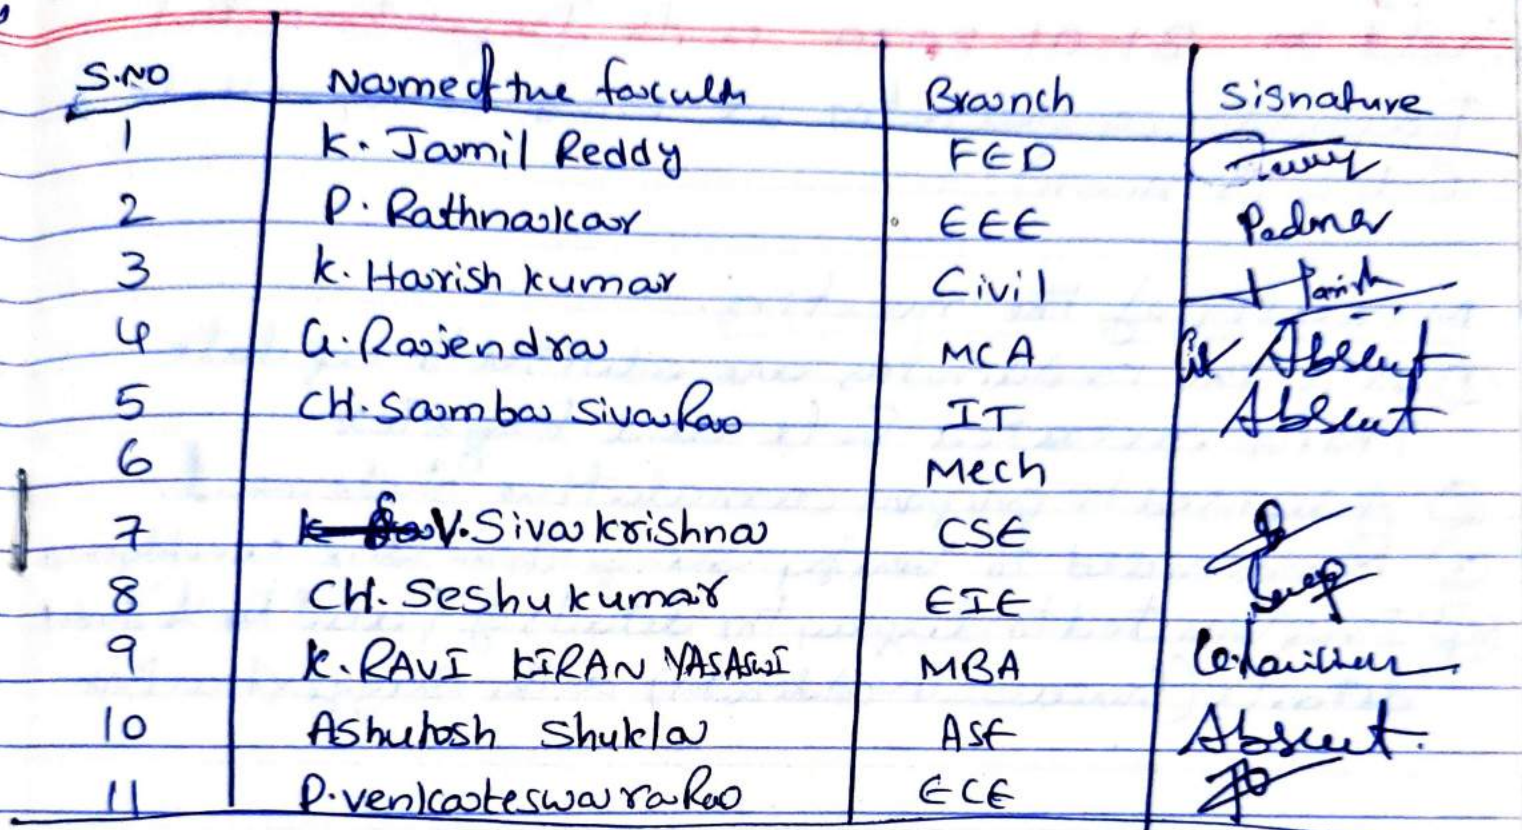 S.NO Name of the faculty Branch Signature
1 K. Jamil Reddy FED
2 P. Rathnakar EEE
3 K. Harish kumar Civil Harish
4 G. Rajendra MCA Absent
5 CH. Samba Siva Rao IT Absent
6 Mech
7 V. Siva krishna CSE
8 CH. Seshu kumar EIE
9 K. RAVI KIRAN YASASWI MBA
10 Ashutosh Shukla ASE Absent.
11 P. venkateswara Rao ECE